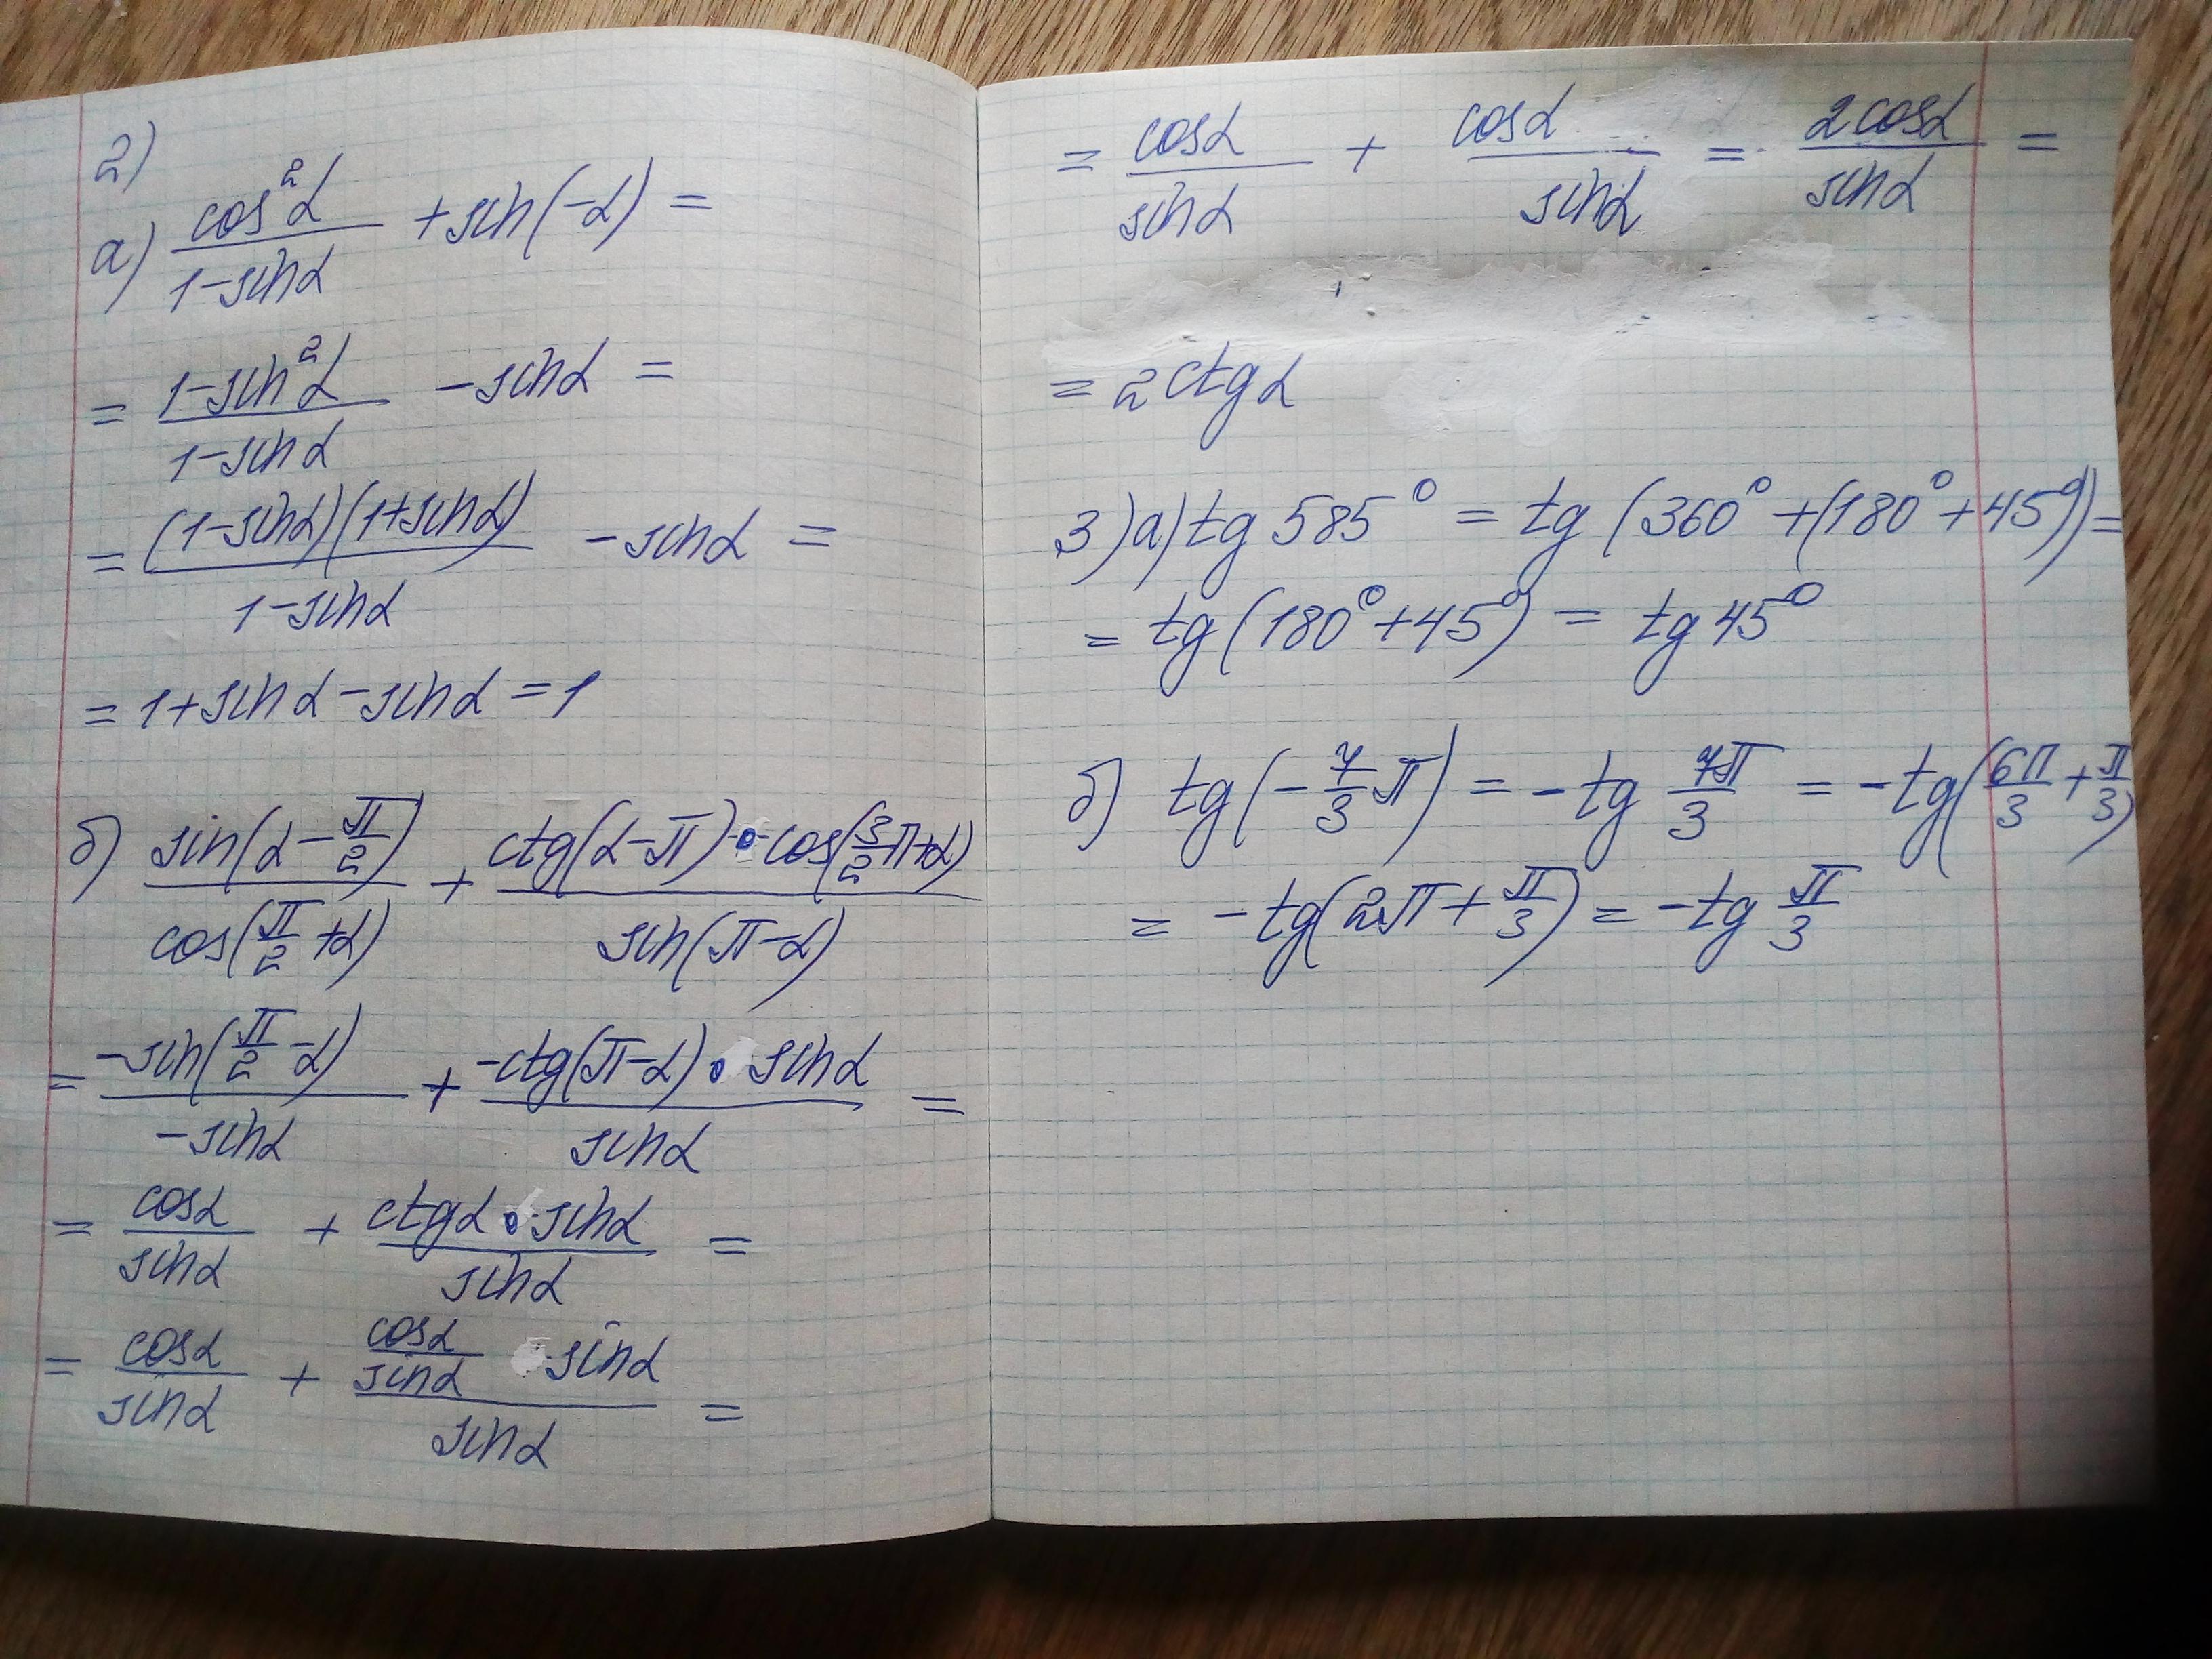 2)
а) cos²α/(1-sinα) + sin(-α) =
= (1-sin²α)/(1-sinα) - sinα =
= (1-sinα)(1+sinα)/(1-sinα) - sinα =
= 1+sinα-sinα = 1
б) sin(α-π/2)/cos(π/2+α) + ctg(α-π)·cos(3/2π+α)/sin(π-α)
= -sin(π/2-α)/-sinα + -ctg(π-α)·sinα/sinα =
= cosα/sinα + ctgα·sinα/sinα =
= cosα/sinα + (cosα/sinα ·sinα)/sinα =
= cosα/sinα + cosα/sinα = 2cosα/sinα =
= 2ctgα
3) а) tg 585° = tg (360° + (180° + 45°)) =
= tg (180° + 45°) = tg 45°
б) tg(-7/3π) = -tg 7π/3 = -tg(6π/3 + π/3)
= -tg(2π + π/3) = -tg π/3